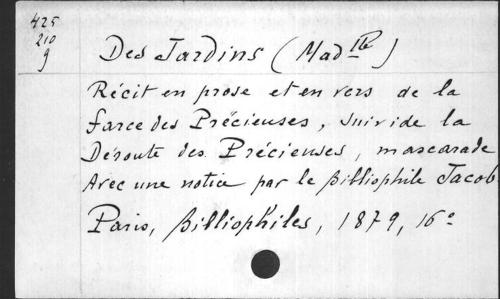 425
210
9
Des Jardins (Mad lle)
Récit en prose et en vers de la
farce des Précieuses, suivi de la
Déroute des Précieuses, mascarade
Avec une notice par le Bibliophile Jacob
Paris, Bibliophiles, 1879, 16°